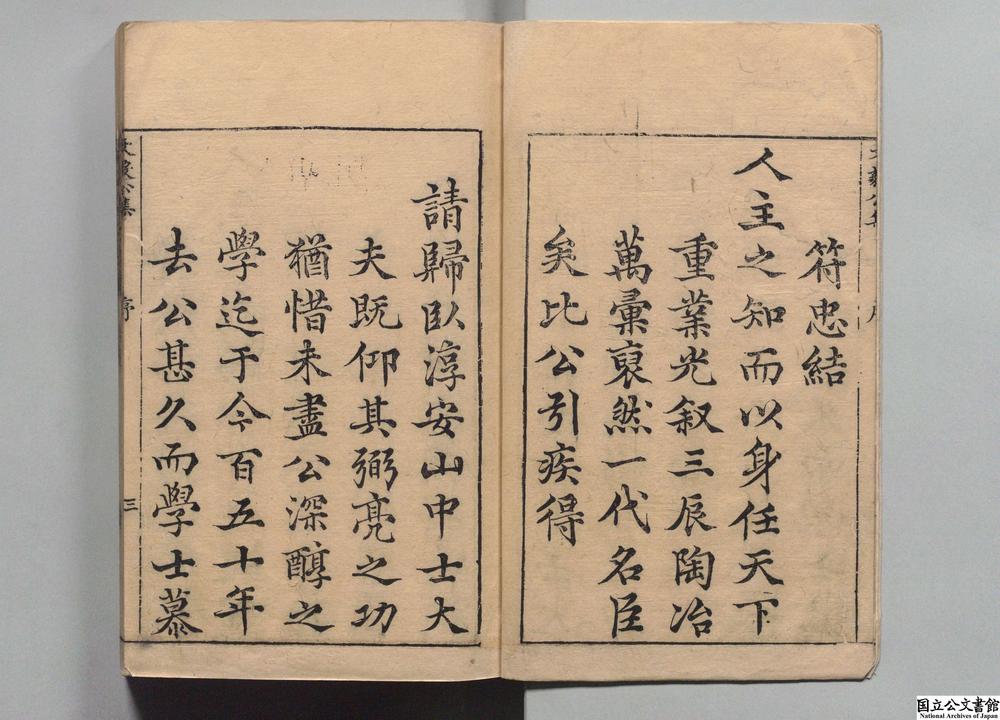 符忠結
人主之知而以身任天下
重業光叙三辰陶冶
萬彙裒然一代名臣
矣比公引疾得
請歸臥淳安山中士大
夫既仰其弼亮之功
猶惜未盡公深醇之
學迄于今百五十年
去公甚久而學士慕
序
三
国立公文書館
National Archives of Japan